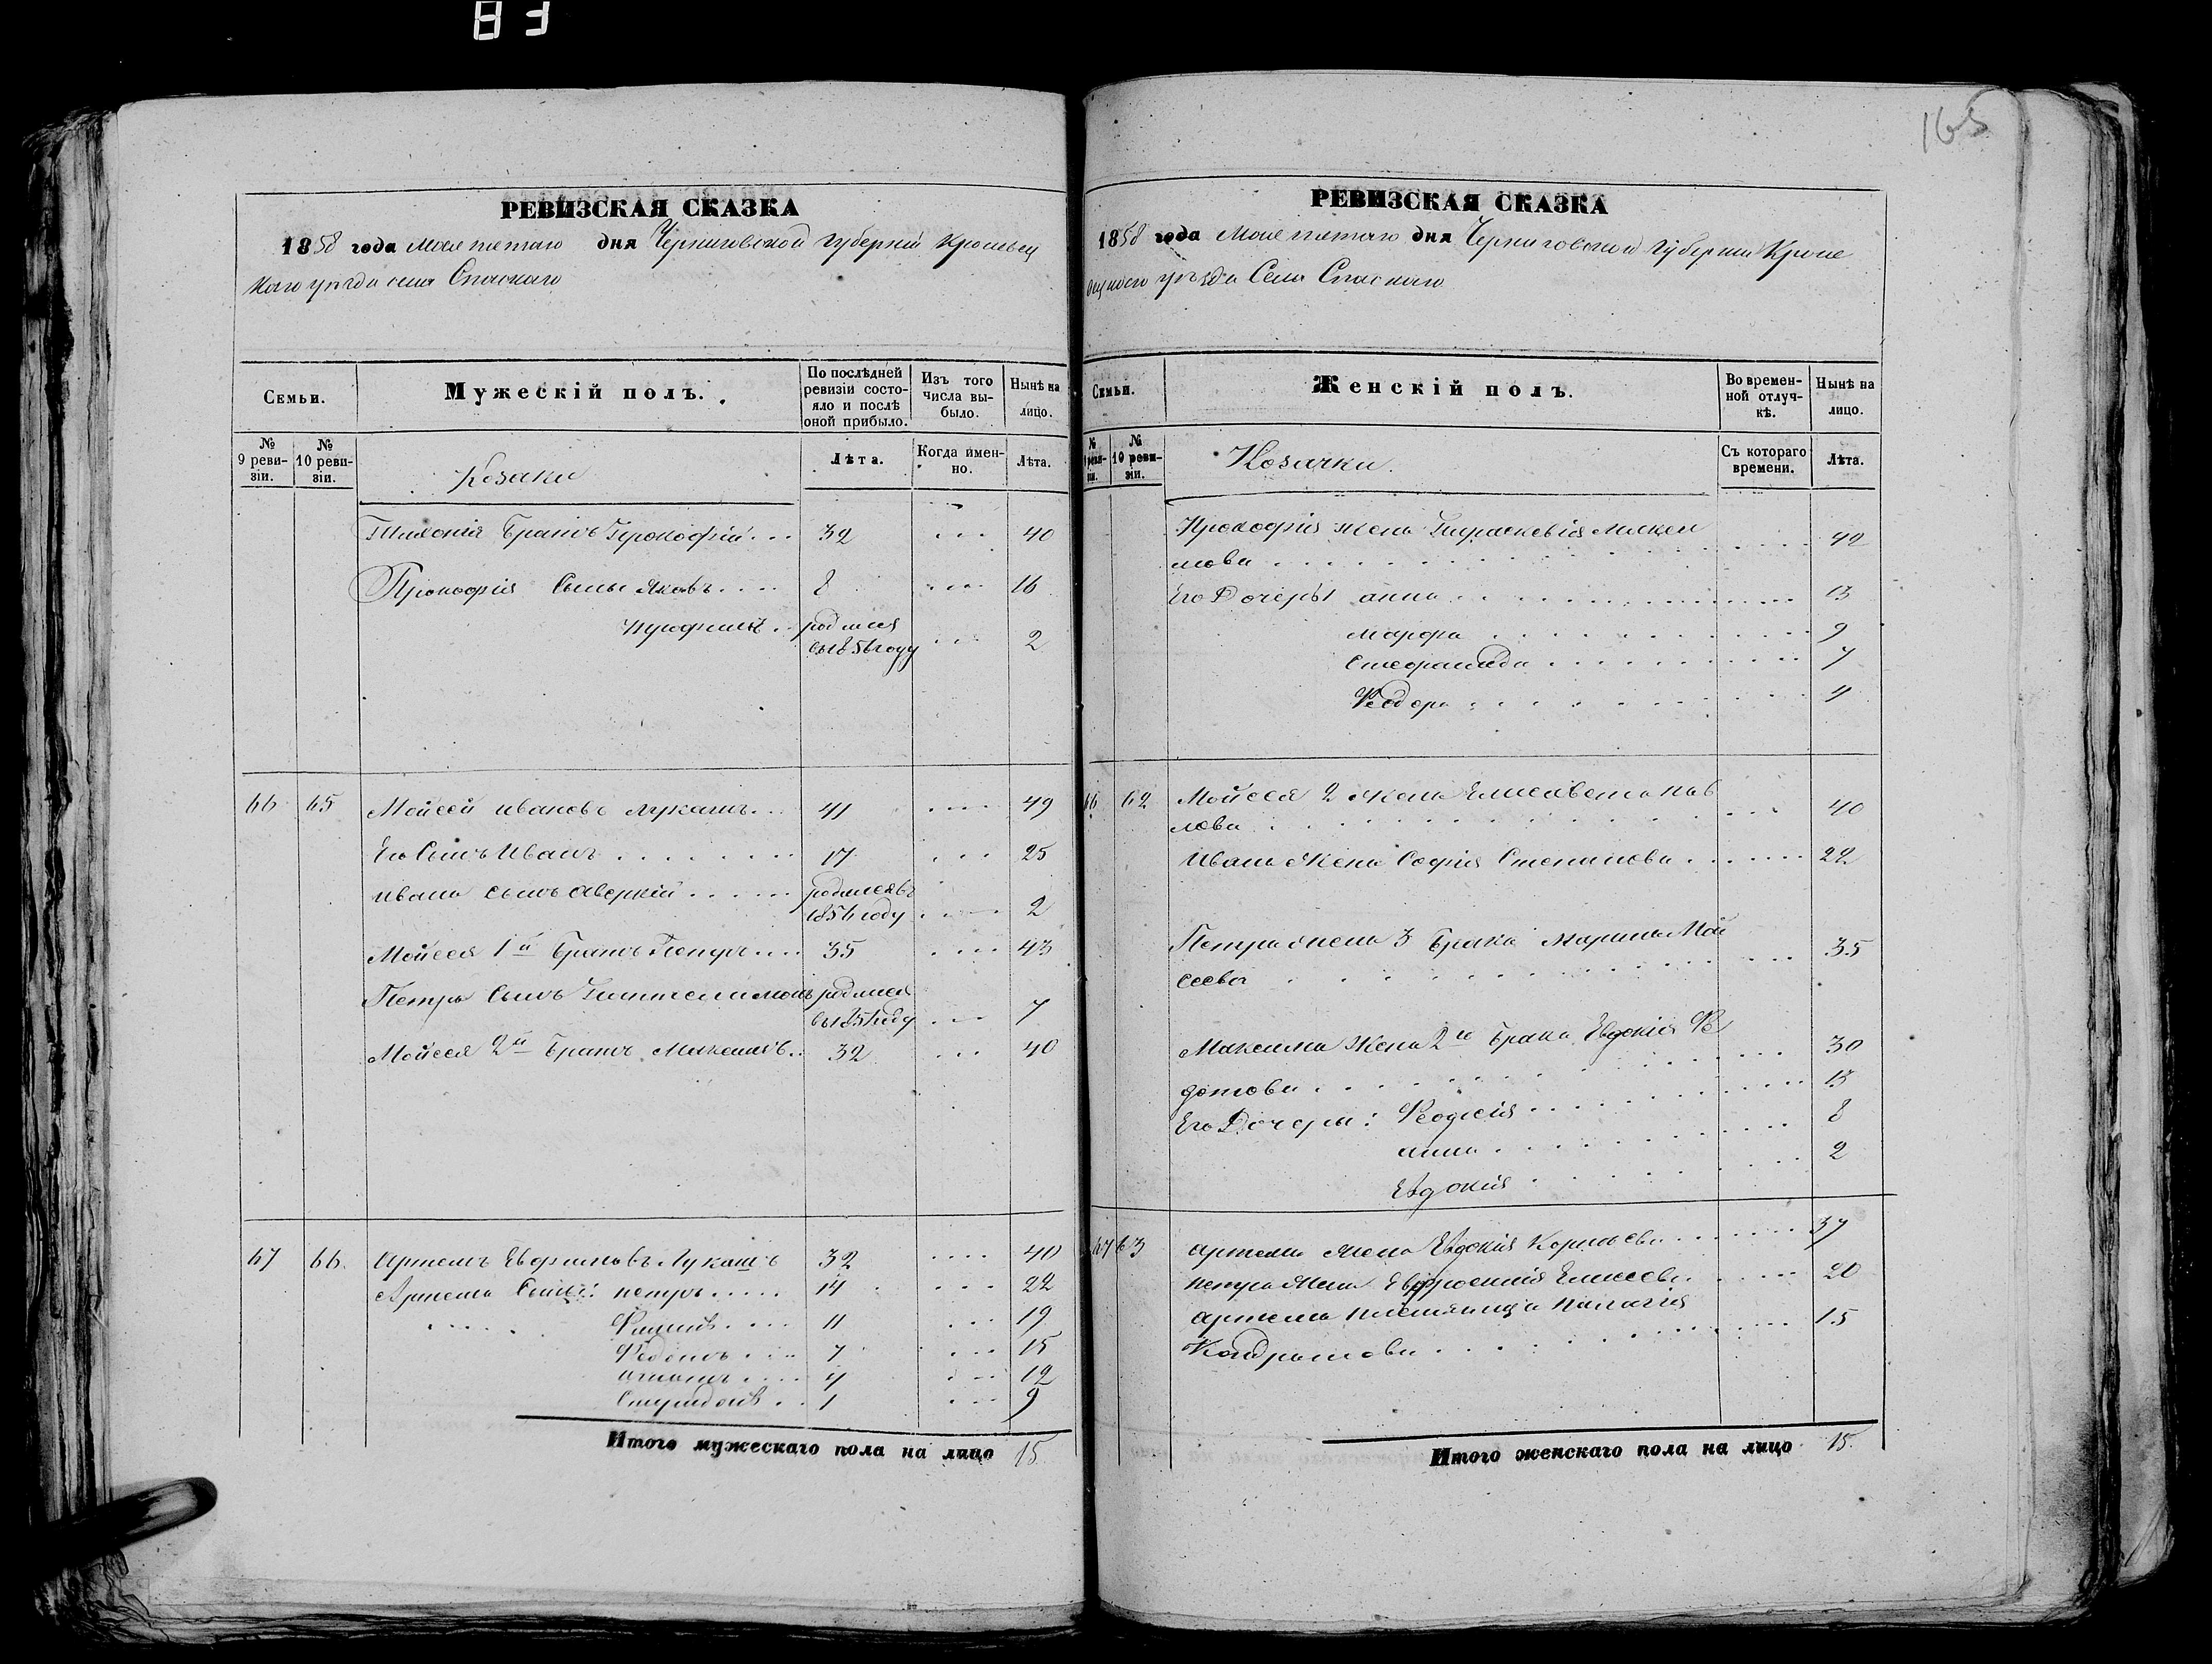 83
165
РЕВИЗСКАЯ СКАЗКА
1858 года Мая пятаго дня Черниговской губернии Кролевец
каго уезда села Спаскаго
Семьи.
Мужескій полъ.
По послѣдней ревизіи состо-
яло и послѣ оной прибыло.
Изъ того числа вы-
было.
Нынѣ на лицо.
№ 9 реви-
зіи.
№ 10 реви-
зіи.
Козаки
Лѣта.
Когда имен-
но.
Лѣта.
Братъ Прокофій 32 40
Прокофія Сыны Яковъ 8 16
родился
въ 1856 году 2
66 65 Мойсей Ивановъ Лукашъ 41 49
Его Сынъ Иванъ 17 25
Ивана сынъ Аверкій родился въ
1856 году 2
Мойсея 1й Братъ Петръ 35 43
Петра Сынъ Пантелимонъ родился
въ 1851 году 7
Мойсея 2й Братъ Максимъ 32 40
67 66 Артемъ Евфимовъ Лукашъ 32 40
Артема Сыны: Петръ 14 22
Филипъ 11 19
Федотъ 7 15
4 12
Спиридонъ 1 9
Итого мужескаго пола на лицо 15
РЕВИЗСКАЯ СКАЗКА
1858 года Мая пятаго дня Черниговской Губернии Кроле
вецкаго уѣзда Села Спаскаго
Семьи.
Женскій полъ.
Во времен-
ной отлуч-
кѣ.
Нынѣ на лицо.
№ 9 реви-
зіи.
№ 10 реви-
зіи.
Козачки.
Съ котораго времени.
Лѣта.
Прокофія жена Параскевія Макси
мова 42
Его Дочеры Анна 13
Марфа 9
Стефанида 7
Феодора 4
66 62 Мойсея 2 жена Елисавета Пав
лова 40
Ивана Жена Софія Степанова 22
Петра жена 3 брака Марина Мой
сеева 35
Максима Жена 2го брака Евдокія Фе
дотова 30
Его Дочеры: Феодосія 13
Анна 8
Евдокія 2
67 63 Артема жена Евдокія Корнѣева 37
Петра Жена Евфросинія Елисеева 20
Артема племяница Палагія 15
Кондратова
Итого женскаго пола на лицо 15.